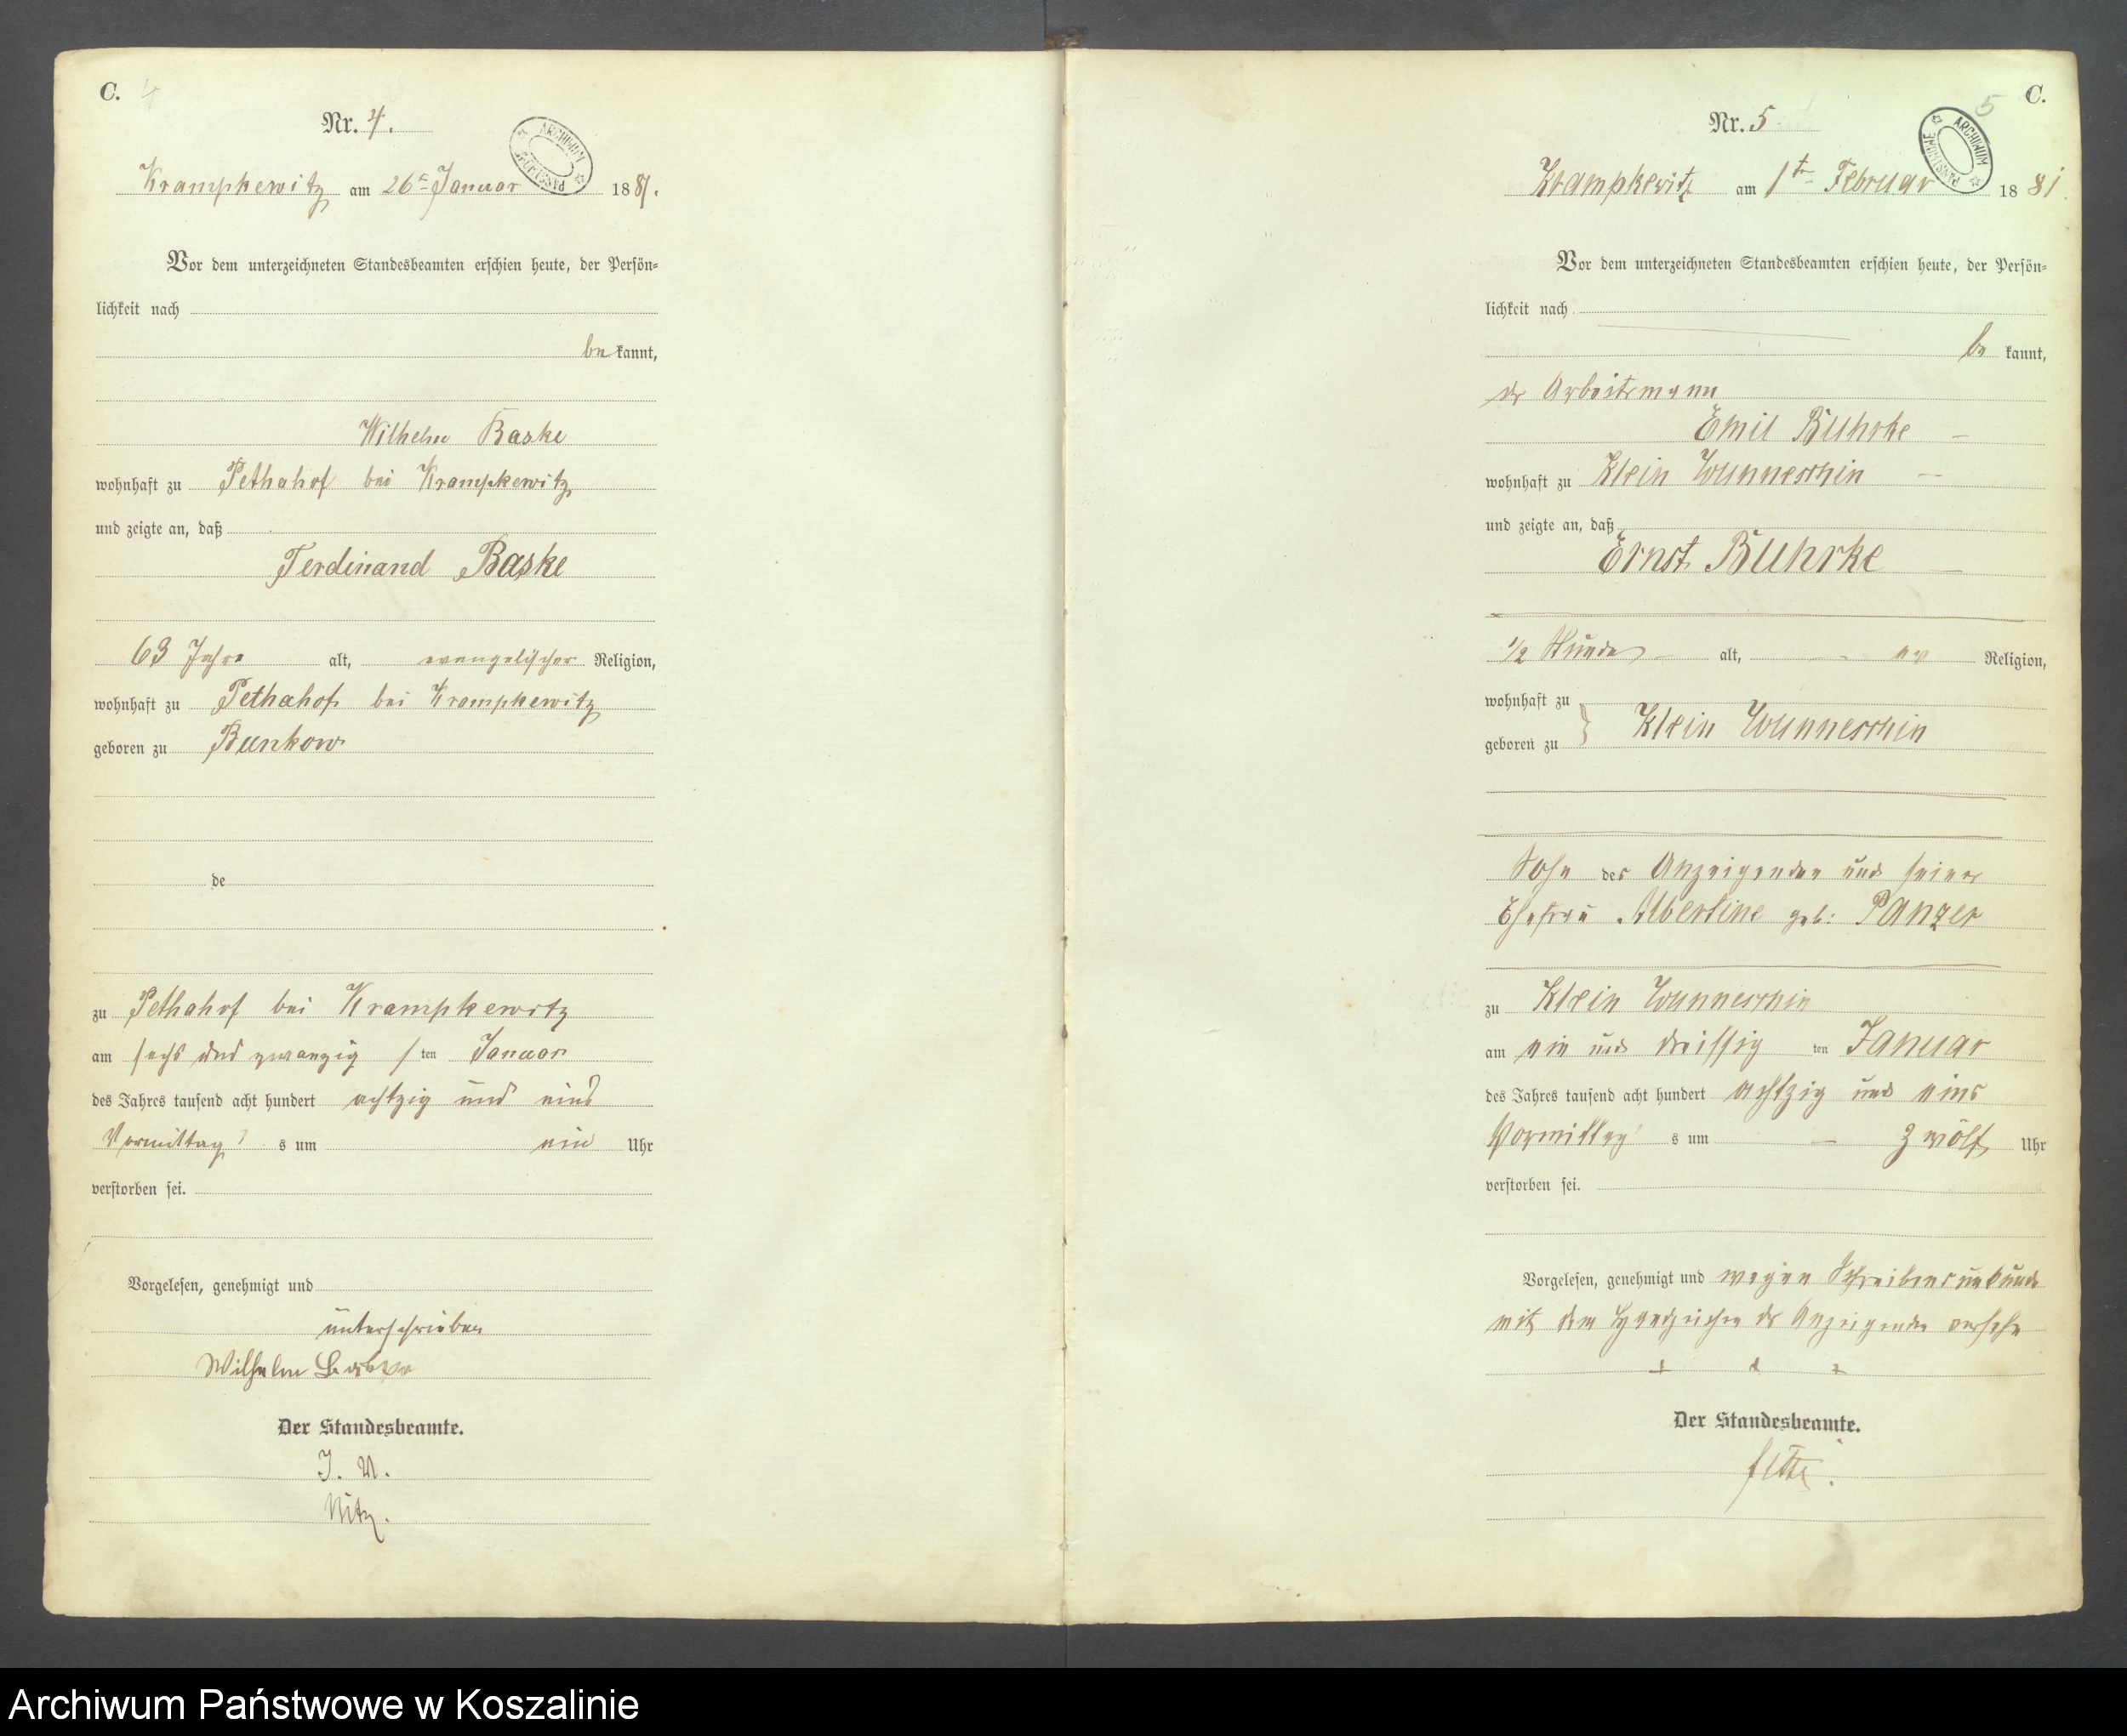 C. 4
Nr. 4.
ARCHIWUM PAŃSTWOWE
Krampkewitz am 26t Januar 1881.
Vor dem unterzeichneten Standesbeamten erschien heute, der Persön-
lichkeit nach
be kannt,
Wilhelm Baske
wohnhaft zu Pethahof bei Krampkewitz
und zeigte an, daß
Ferdinand Baske
63 Jahre alt, evangelischer Religion,
wohnhaft zu Pethahof bei Krampkewitz
geboren zu Bunkow
de
zu Pethahof bei Krampkewitz
am sechs und zwanzig sten Januar
des Jahres tausend acht hundert achtzig und eins
Vormittag s um ein Uhr
verstorben sei.
Vorgelesen, genehmigt und
unterschrieben
Wilhelm Baske
Der Standesbeamte.
J. V.
Nitz.
5 C.
Nr. 5
ARCHIWUM PAŃSTWOWE
Krampkewitz am 1t Februar 1881.
Vor dem unterzeichneten Standesbeamten erschien heute, der Persön-
lichkeit nach
be kannt,
der Arbeitsmann
Emil Buhrke
wohnhaft zu Klein Wunneschin
und zeigte an, daß
Ernst Buhrke
1/2 Stunde alt, ev Religion,
wohnhaft zu
geboren zu } Klein Wunneschin
Sohn des Anzeigenden und seiner
Ehefrau Albertine geb: Panzer
zu Klein Wunneschin
am ein und dreissig ten Januar
des Jahres tausend acht hundert achtzig und eins
Vormittag s um zwölf Uhr
verstorben sei.
Vorgelesen, genehmigt und wegen Schreibensunkunde
mit dem Handzeichen des Anzeigenden versehen
+ + +
Der Standesbeamte.
Archiwum Państwowe w Koszalinie